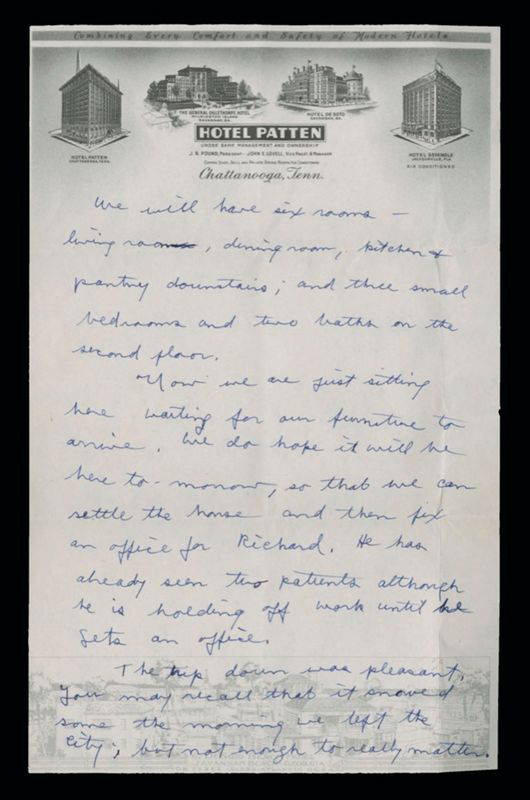 Combining Every Comfort and Safety of Modern Hotels
THE GENERAL OGLETHORPE HOTEL
WILMINGTON ISLAND
SAVANNAH, GA.
HOTEL DE SOTO
SAVANNAH, GA.
HOTEL PATTEN
CHATTANOOGA, TENN.
HOTEL PATTEN
UNDER SAME MANAGEMENT AND OWNERSHIP
J. B. POUND, PRESIDENT - JOHN E. LOVELL, VICE PRES'T. & MANAGER
COFFEE SHOP, GRILL AND PRIVATE DINING ROOMS AIR CONDITIONED
Chattanooga, Tenn.
HOTEL SEMINOLE
JACKSONVILLE, FLA.
AIR CONDITIONED
We will have six rooms –
living room, dining room, kitchen &
pantry downstairs; and three small
bedrooms and two baths on the
second floor.
Now we are just sitting
here waiting for our furniture to
arrive. We do hope it will be
here to-morrow, so that we can
settle the house and then fix
an office for Richard. He has
already seen two patients although
he is holding off work until he
gets an office.
The trip down was pleasant.
You may recall that it snowed
some the morning we left the
city; but not enough to really matter.